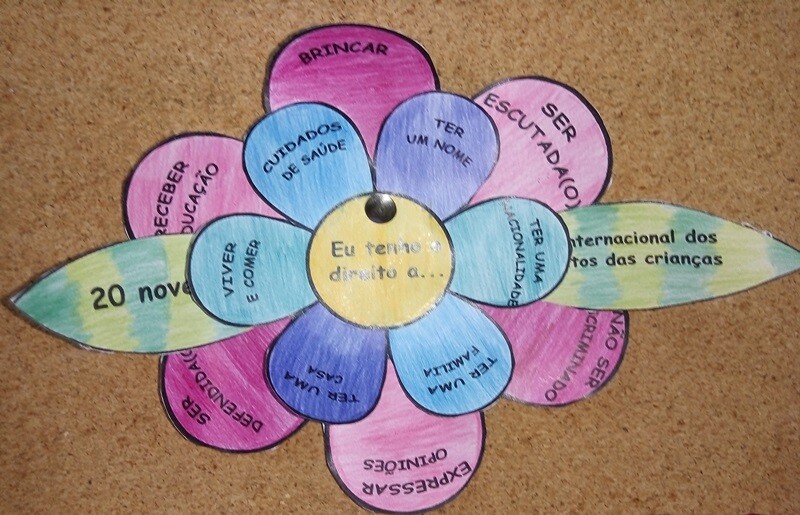 BRINCAR
SER
ESCUTADA(O)
TER
UM NOME
CUIDADOS
DE SAÚDE
RECEBER
DUCAÇÃO
TER UMA
NACIONALIDADE
nternacional dos
tos das crianças
Eu tenho o
direito a...
VIVER
E COMER
20 nove
NÃO SER
CRIMINADO
TER UMA
FAMÍLIA
TER UMA
CASA
SER
DEFENDIDA(O)
EXPRESSAR
OPINIÕES